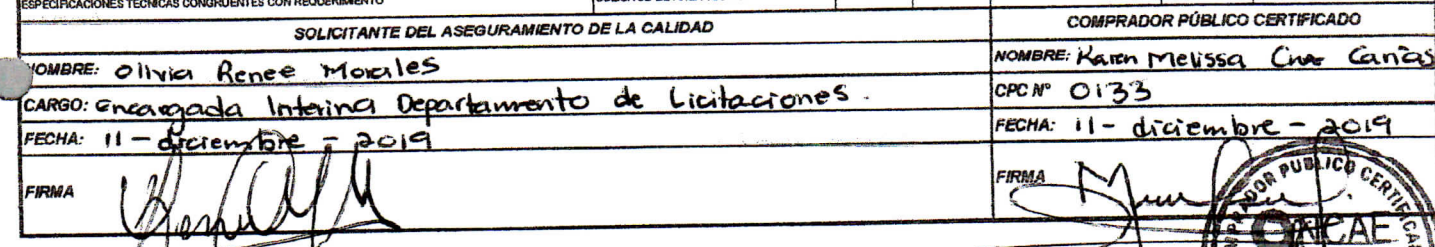 ESPECIFICACIONES TÉCNICAS CONGRUENTES CON REQUERIMIENTO
SOLICITANTE DEL ASEGURAMIENTO DE LA CALIDAD
NOMBRE: Olivia Renee Morales
CARGO: Encargada Interina Departamento de Licitaciones.
FECHA: 11 - diciembre - 2019
FIRMA
COMPRADOR PÚBLICO CERTIFICADO
NOMBRE: Karen Melissa Canas
CPC Nº 0133
FECHA: 11 - diciembre - 2019
FIRMA
PUBLICO
ONCAE